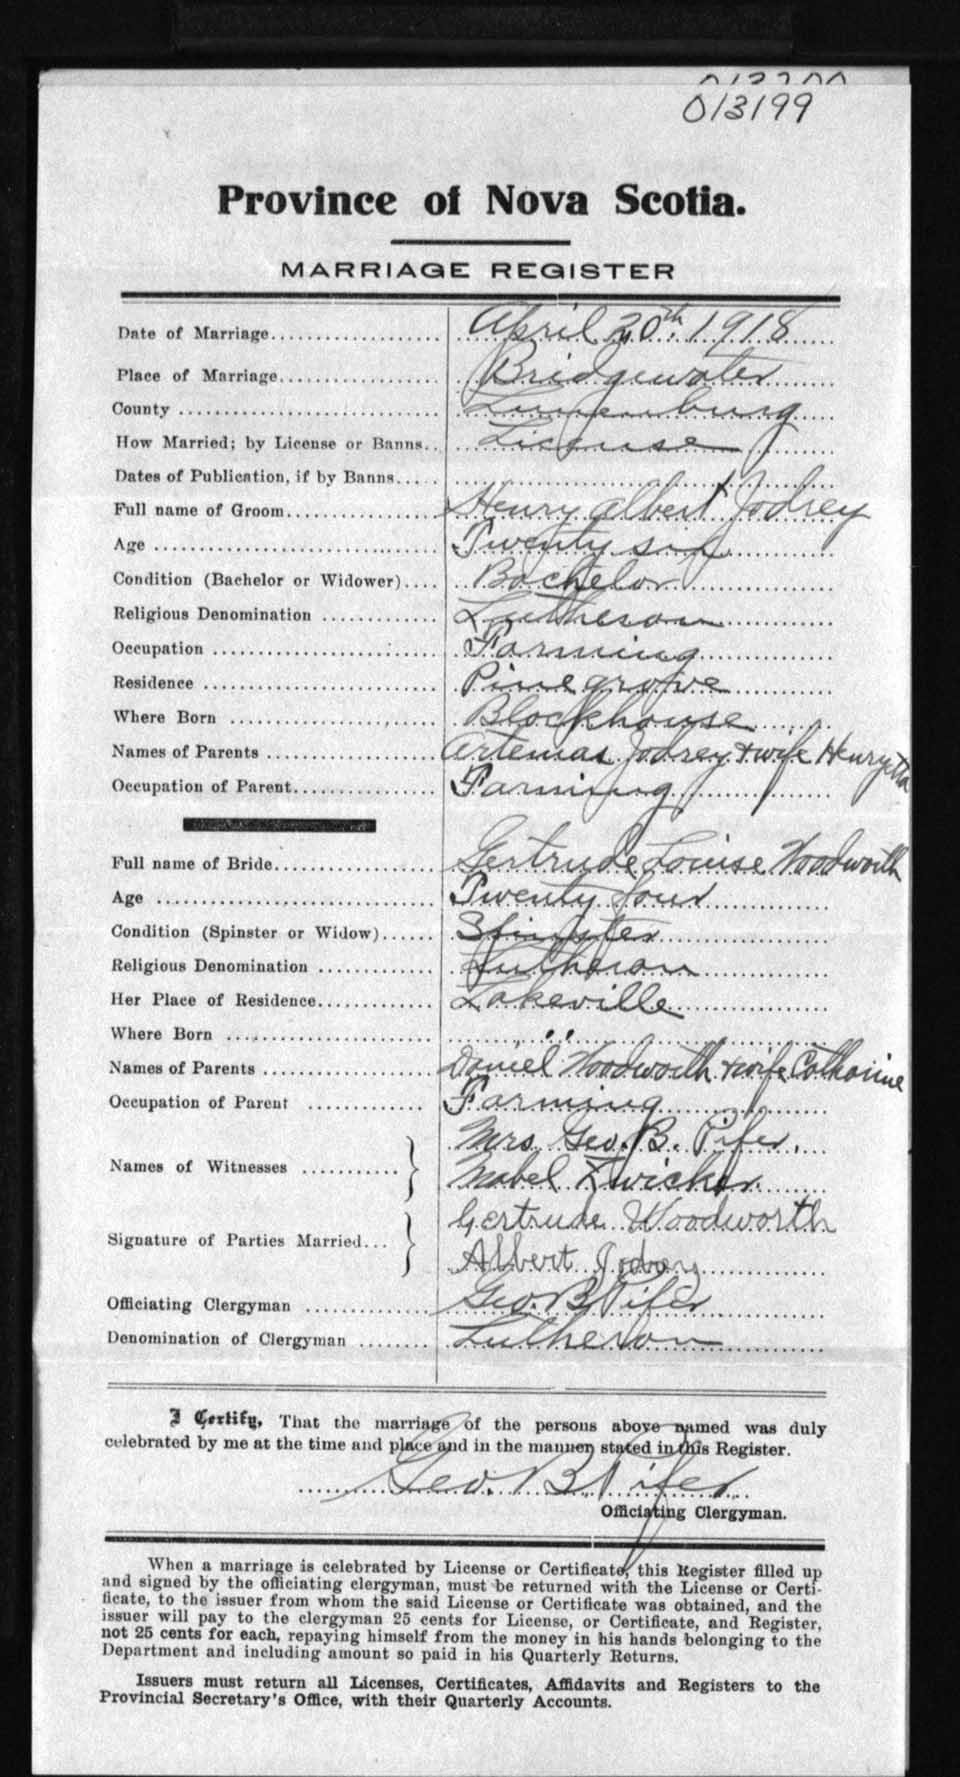 013199
Province of Nova Scotia.
MARRIAGE REGISTER
Date of Marriage April 20th, 1918
Place of Marriage Bridgewater
County Lunenburg
How Married; by License or Banns License
Dates of Publication, if by Banns
Full name of Groom Henry Albert Jodrey
Age Twenty six
Condition (Bachelor or Widower) Bachelor
Religious Denomination Lutheran
Occupation Farming
Residence Pinegrove
Where Born Blockhouse
Names of Parents Artemas Jodrey & wife Henrytta
Occupation of Parent Farming
Full name of Bride Gertrude Louise Woodworth
Age Twenty four
Condition (Spinster or Widow) Spinster
Religious Denomination Lutheran
Her Place of Residence Lakeville
Where Born " "
Names of Parents Daniel Woodworth & wife Catharine
Occupation of Parent Farming
Names of Witnesses Mrs. Geo. B. Pifer.
Mabel Zwicker.
Signature of Parties Married Gertrude Woodworth
Albert Jodrey
Officiating Clergyman Geo. B. Pifer
Denomination of Clergyman Lutheran
I Certify, That the marriage of the persons above named was duly
celebrated by me at the time and place and in the manner stated in this Register.
Geo. B. Pifer
Officiating Clergyman.
When a marriage is celebrated by License or Certificate, this Register filled up
and signed by the officiating clergyman, must be returned with the License or Certi-
ficate, to the issuer from whom the said License or Certificate was obtained, and the
issuer will pay to the clergyman 25 cents for License, or Certificate, and Register,
not 25 cents for each, repaying himself from the money in his hands belonging to the
Department and including amount so paid in his Quarterly Returns.
Issuers must return all Licenses, Certificates, Affidavits and Registers to the
Provincial Secretary's Office, with their Quarterly Accounts.